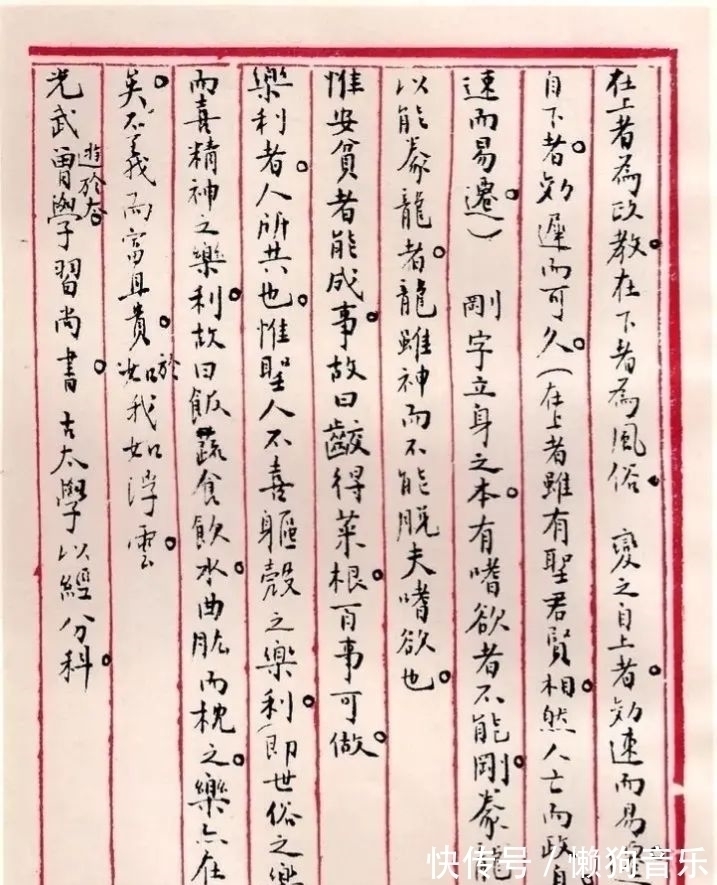 在上者為政教。在下者為風俗。 變之自上者。効速而易
自下者。効遲而可久。(在上者雖有聖君賢相。然人亡而政
速而易遷。) 剛字立身之本。有嗜欲者不能剛。豢龍
以能豢龍者。龍雖神而不能脱夫嗜欲也。
惟安貧者能成事。故曰齩得菜根。百事可做。
樂利者。人所共也。惟聖人不喜軀殼之樂利。(即世俗之樂
而喜精神之樂利。故曰飯蔬食飲水。曲肱而枕之。樂亦在
矣。不義而富且貴。於我如浮雲。
光武曾遊於太學習尚書。古太學以經分科。
快传号/懒狗音乐